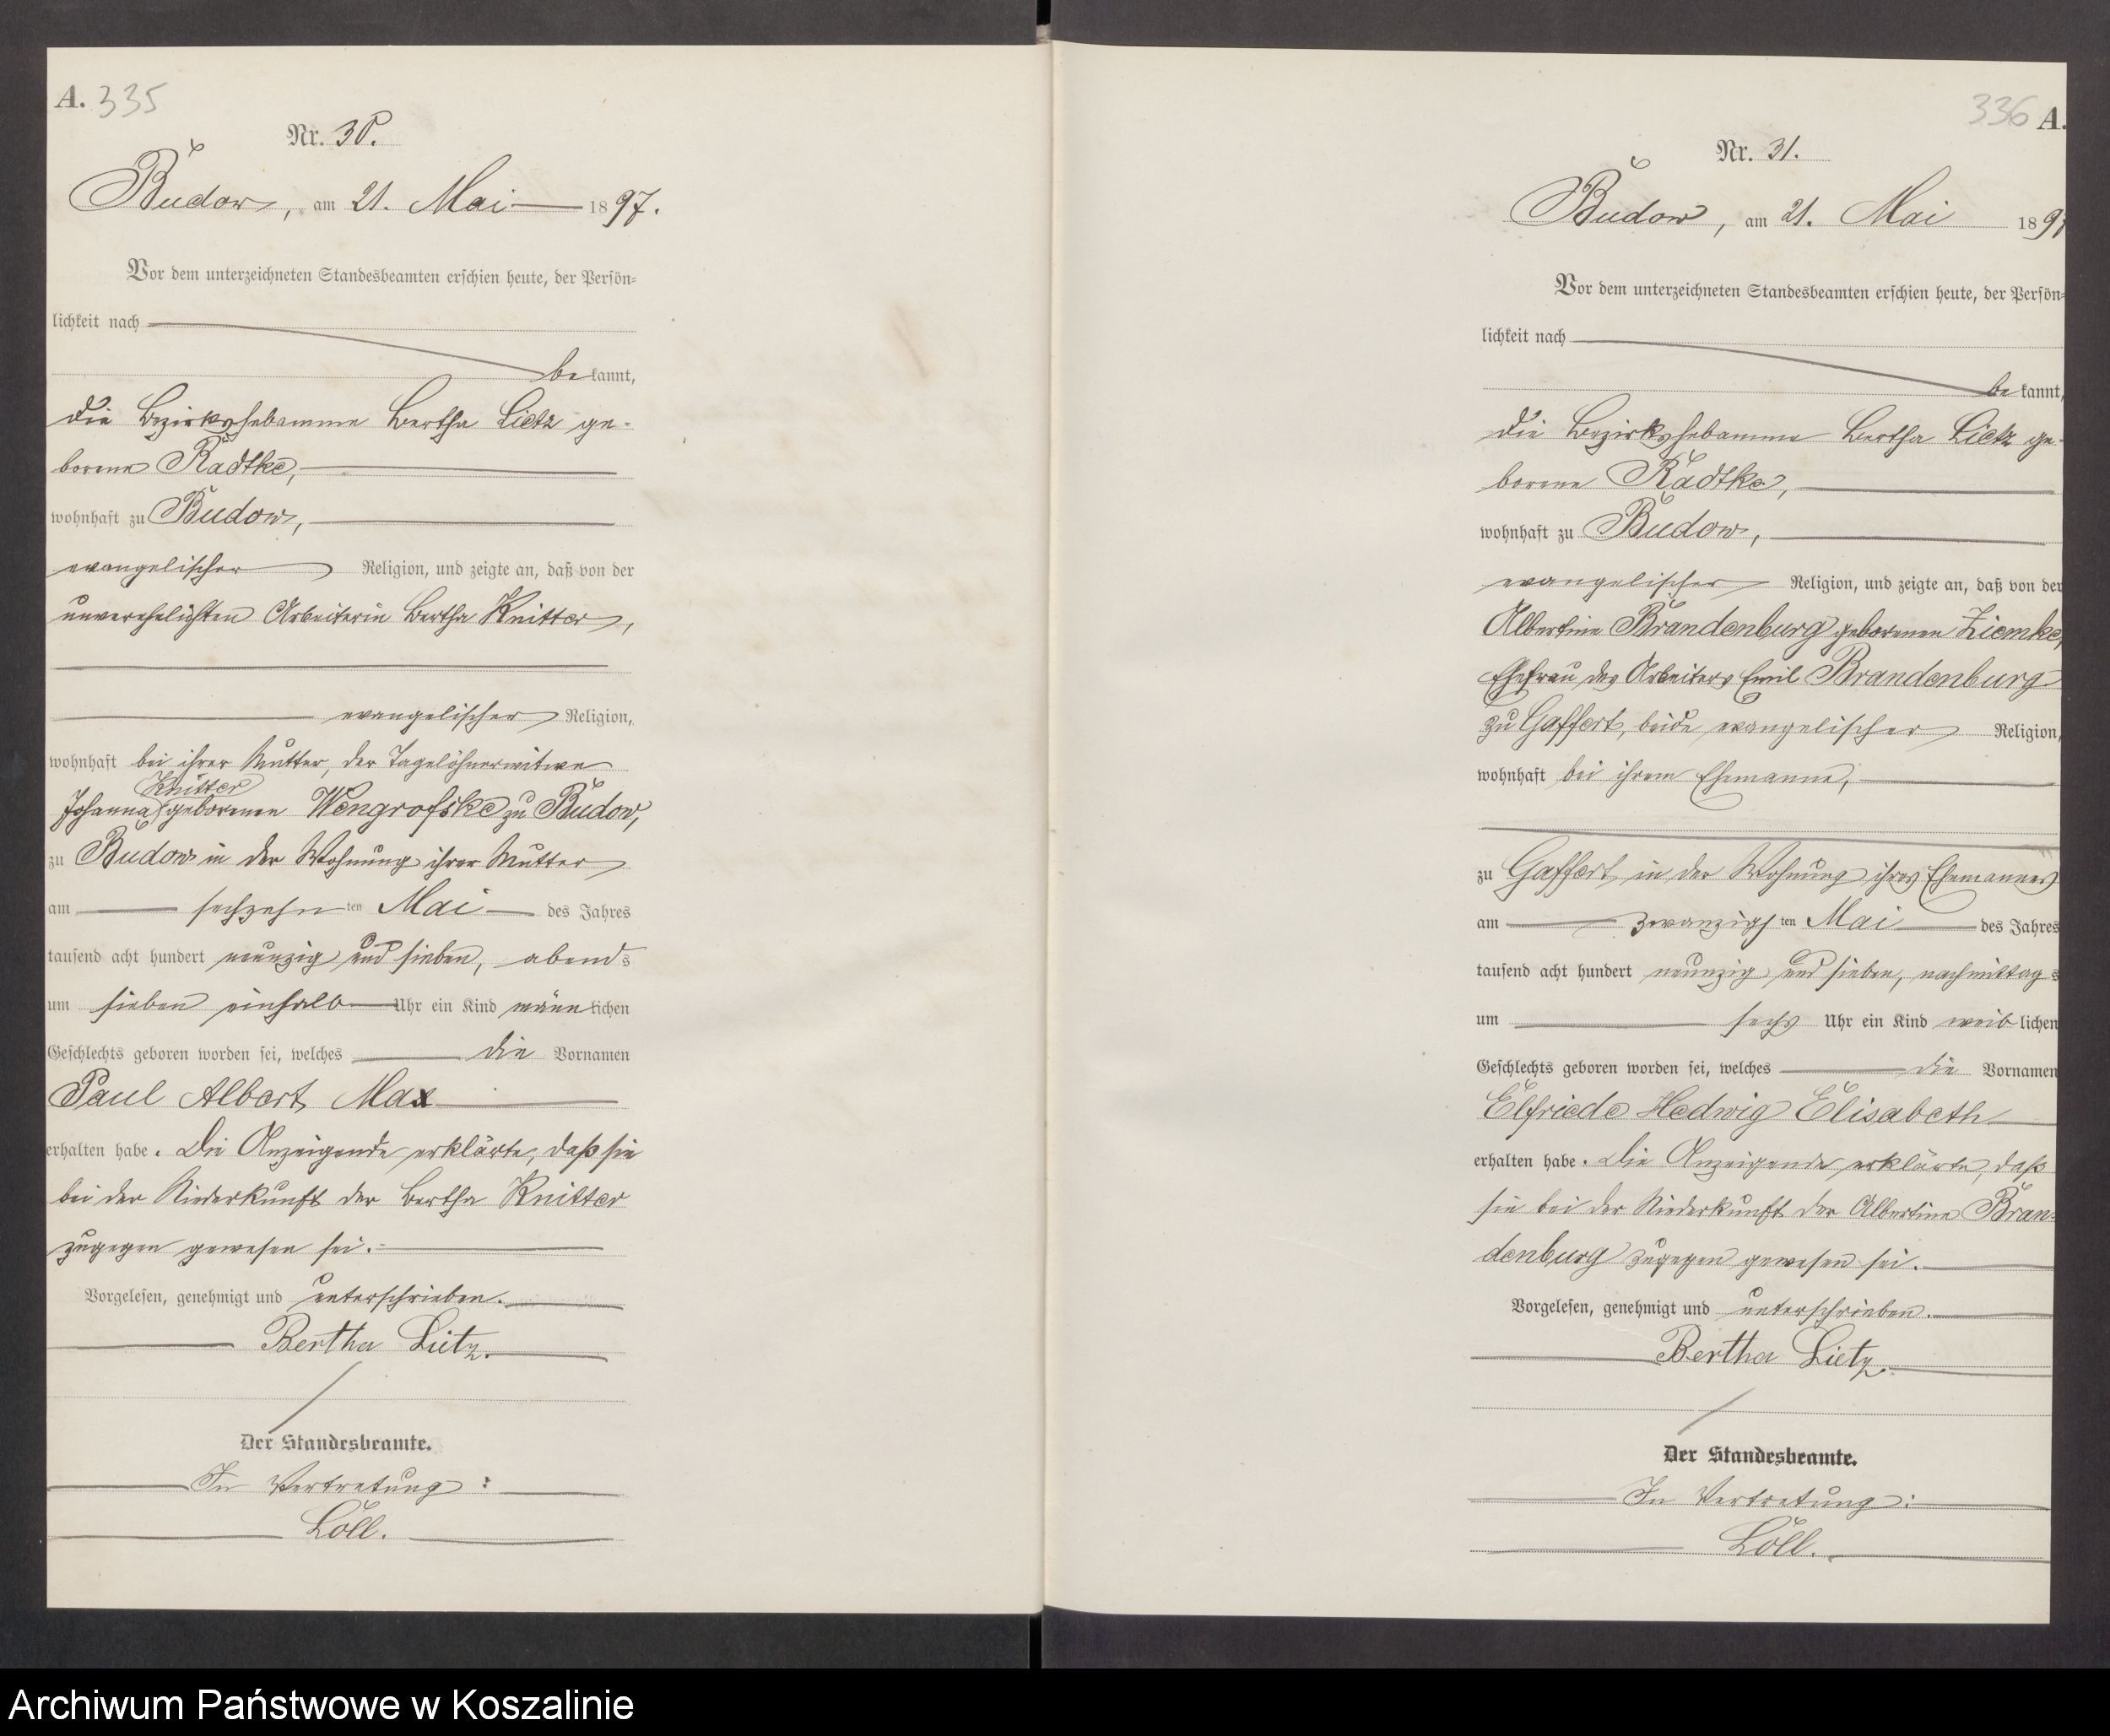 A. 335
Nr. 30.
Budow, am 21. Mai 1897.
Vor dem unterzeichneten Standesbeamten erschien heute, der Persön=
lichkeit nach
bekannt,
die Bezirkshebamme Bertha Lietz ge-
borene Radtke,
wohnhaft zu Budow,
evangelischer Religion, und zeigte an, daß von der
unverehelichten Arbeiterin Bertha Knitter,
evangelischer Religion,
wohnhaft bei ihrer Mutter, der Tagelöhnerwitwe
Knitter
Johanna geborenen Wengrofske zu Budow,
zu Budow in der Wohnung ihrer Mutter
am sechzehnten Mai des Jahres
tausend acht hundert neunzig und sieben, abends
um sieben einhalb Uhr ein Kind männlichen
Geschlechts geboren worden sei, welches die Vornamen
Paul Albert Max
erhalten habe. Die Anzeigende erklärte, daß sie
bei der Niederkunft der Bertha Knitter
zugegen gewesen sei.
Vorgelesen, genehmigt und unterschrieben.
Bertha Lietz.
Der Standesbeamte.
In Vertretung:
Löll.
336 A.
Nr. 31.
Budow, am 21. Mai 1897
Vor dem unterzeichneten Standesbeamten erschien heute, der Persön=
lichkeit nach
bekannt,
die Bezirkshebamme Bertha Lietz ge-
borene Radtke,
wohnhaft zu Budow,
evangelischer Religion, und zeigte an, daß von der
Albertine Brandenburg geborenen Ziemke,
Ehefrau des Arbeiters Emil Brandenburg
zu Gaffert, beide evangelischer Religion,
wohnhaft bei ihrem Ehemanne,
zu Gaffert in der Wohnung ihres Ehemannes
am zwanzigsten Mai des Jahres
tausend acht hundert neunzig und sieben, nachmittags
um sechs Uhr ein Kind weiblichen
Geschlechts geboren worden sei, welches die Vornamen
Elfriede Hedwig Elisabeth
erhalten habe. Die Anzeigende erklärte, daß
sie bei der Niederkunft der Albertine Bran-
denburg zugegen gewesen sei.
Vorgelesen, genehmigt und unterschrieben.
Bertha Lietz.
Der Standesbeamte.
In Vertretung:
Löll.
Archiwum Państwowe w Koszalinie